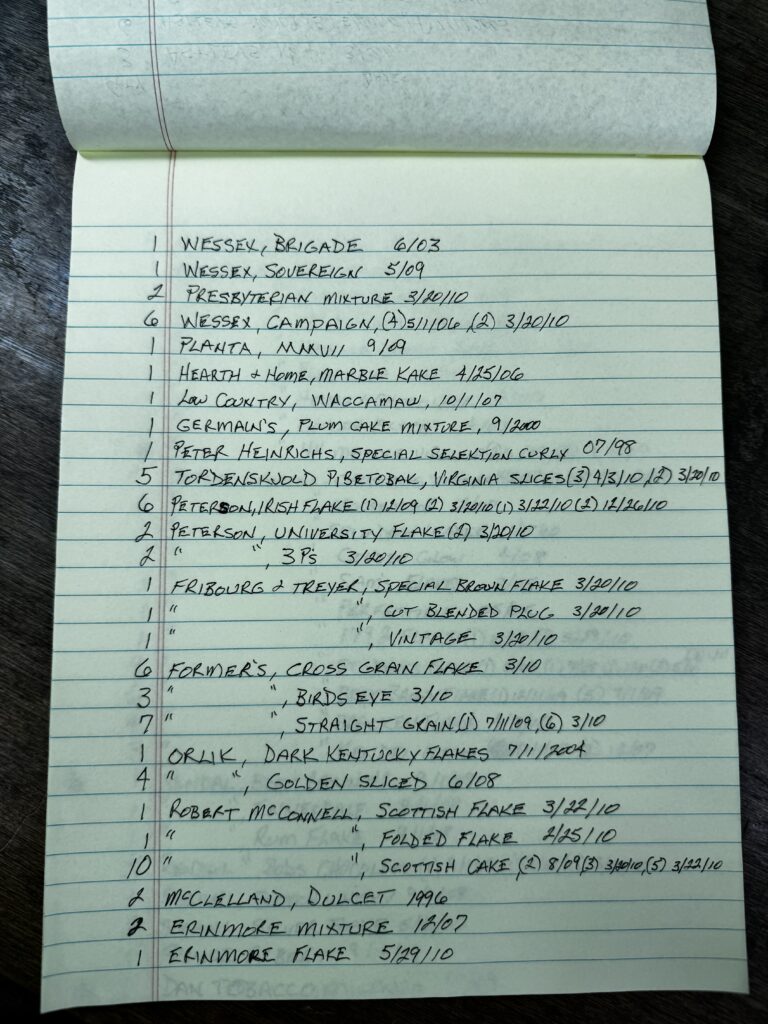 1 WESSEX, BRIGADE 6/03
1 WESSEX, SOVEREIGN 5/09
2 PRESBYTERIAN MIXTURE 3/20/10
6 WESSEX, CAMPAIGN, (4) 5/1/06, (2) 3/20/10
1 PLANTA, MMVII 9/09
1 HEARTH & HOME, MARBLE KAKE 4/25/06
1 LOW COUNTRY, WACCAMAW, 10/1/07
1 GERMAIN'S, PLUM CAKE MIXTURE, 9/2000
1 PETER HEINRICHS, SPECIAL SELEKTION CURLY 07/98
5 TORDENSKJOLD PIBETOBAK, VIRGINIA SLICES (3) 4/3/10, (2) 3/20/10
6 PETERSON, IRISH FLAKE (1) 12/09 (2) 3/20/10 (1) 3/22/10 (2) 12/26/10
2 PETERSON, UNIVERSITY FLAKE (2) 3/20/10
2 " ", 3 P's 3/20/10
1 FRIBOURG & TREYER, SPECIAL BROWN FLAKE 3/20/10
1 " ", CUT BLENDED PLUG 3/20/10
1 " ", VINTAGE 3/20/10
6 FORMER'S, CROSS GRAIN FLAKE 3/10
3 " ", BIRDS EYE 3/10
7 " ", STRAIGHT GRAIN (1) 7/11/09, (6) 3/10
1 ORLIK, DARK KENTUCKY FLAKES 7/1/2004
4 " ", GOLDEN SLICED 6/08
1 ROBERT McCONNELL, SCOTTISH FLAKE 3/22/10
1 " ", FOLDED FLAKE 2/25/10
10 " ", SCOTTISH CAKE (2) 8/09 (3) 3/20/10, (5) 3/22/10
2 McCLELLAND, DULCET 1996
2 ERINMORE MIXTURE 12/07
1 ERINMORE FLAKE 5/29/10